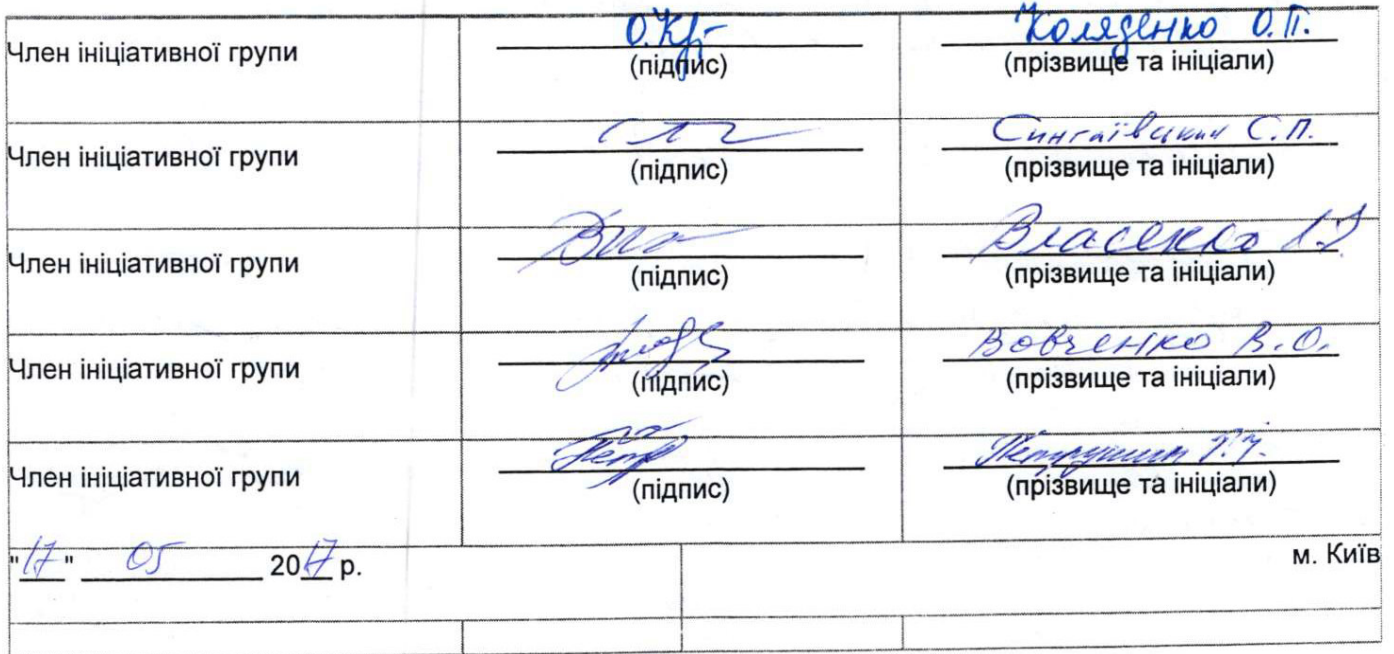 Член ініціативної групи О.К (підпис) Коляденко О.П. (прізвище та ініціали)
Член ініціативної групи (підпис) Сингаївський С.П. (прізвище та ініціали)
Член ініціативної групи (підпис) Власенко (прізвище та ініціали)
Член ініціативної групи (підпис) Вовченко В.О. (прізвище та ініціали)
Член ініціативної групи (підпис) (прізвище та ініціали)
"17" 05 2017 р. м. Київ